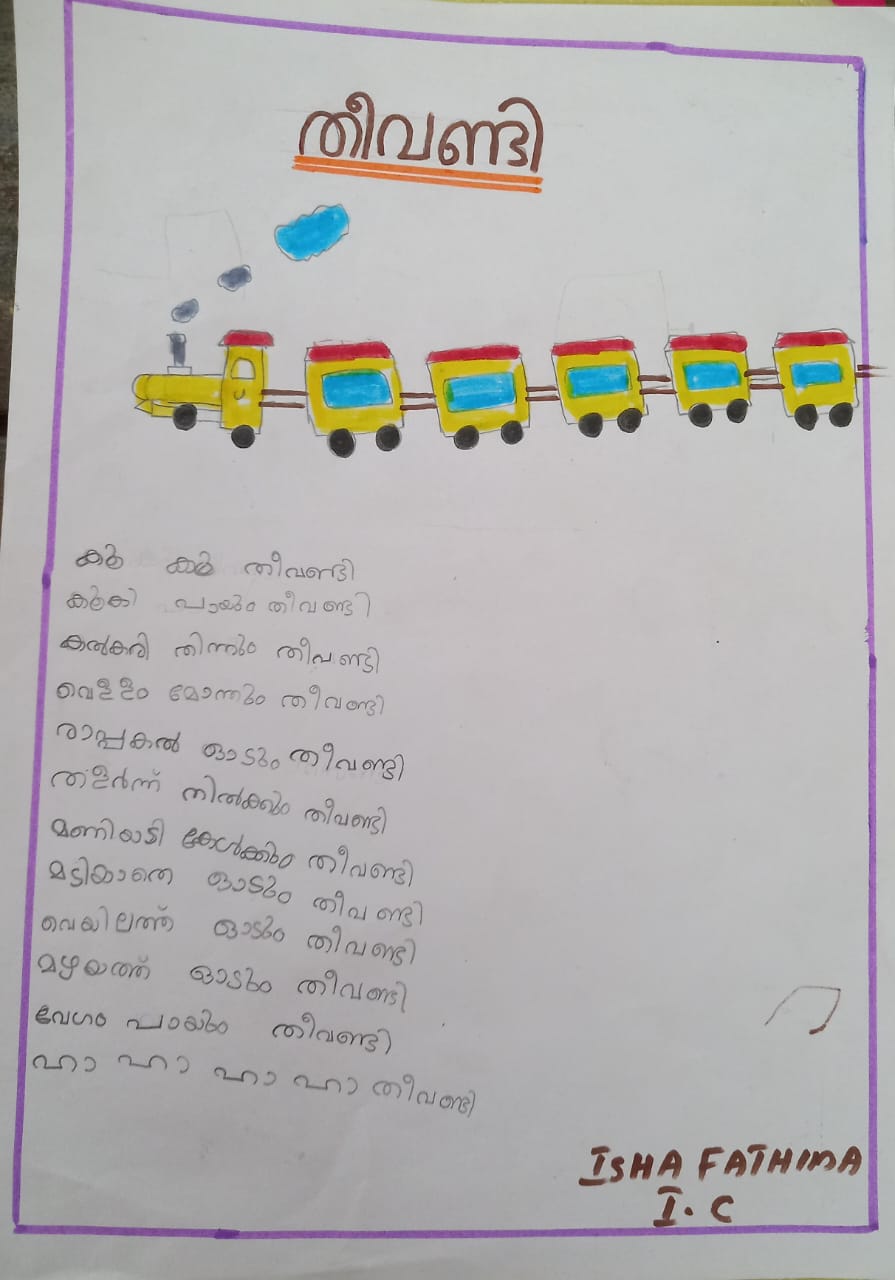 തീവണ്ടി
കൂ കൂ തീവണ്ടി
കൂകി പായും തീവണ്ടി
കൽകരി തിന്നും തീവണ്ടി
വെള്ളം മോന്തും തീവണ്ടി
രാപ്പകൽ ഓടും തീവണ്ടി
തളർന്ന് നിൽക്കും തീവണ്ടി
മണിയടി കേൾക്കും തീവണ്ടി
മടിയാതെ ഓടും തീവണ്ടി
വെയിലത്ത് ഓടും തീവണ്ടി
മഴയത്ത് ഓടും തീവണ്ടി
വേഗം പായും തീവണ്ടി
ഹാ ഹാ ഹാ ഹാ തീവണ്ടി
ISHA FATHIMA
I. C